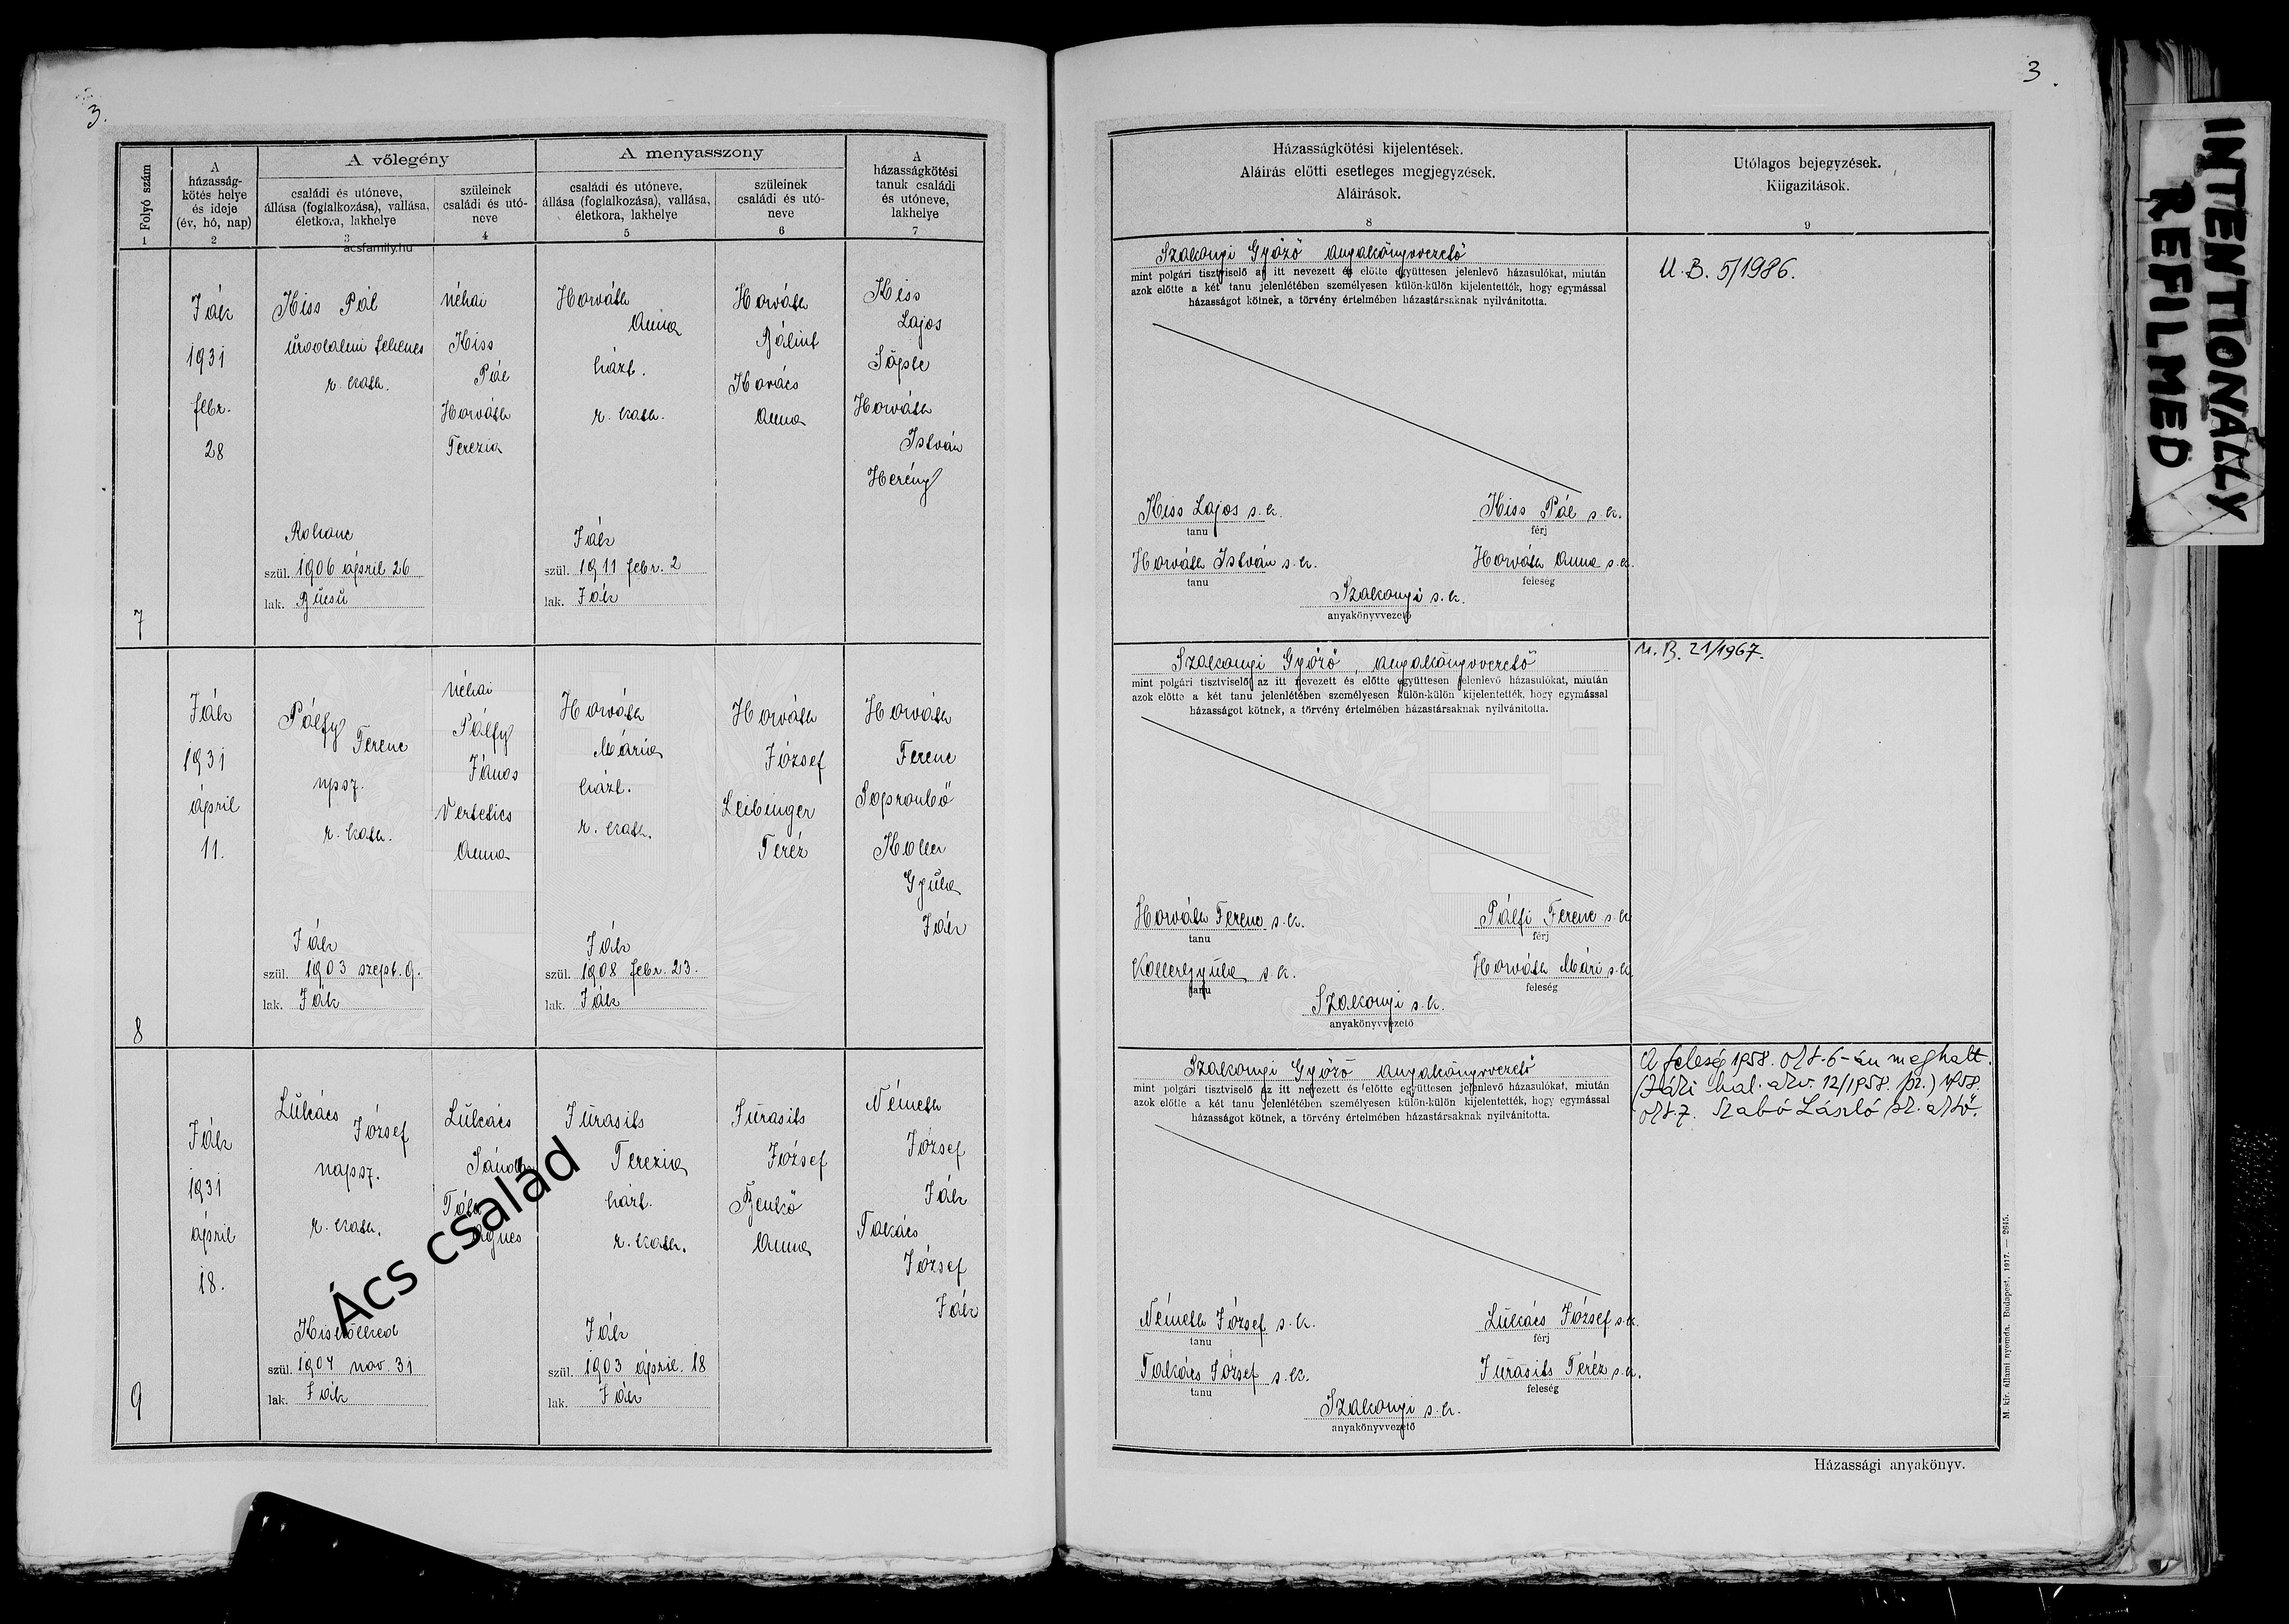 3.
A vőlegény
A menyasszony
Folyó szám
A
házasság-
kötés helye
és ideje
(év, hó, nap)
családi és utóneve,
állása (foglalkozása), vallása,
életkora, lakhelye
szüleinek
családi és utó-
neve
családi és utóneve,
állása (foglalkozása), vallása,
életkora, lakhelye
szüleinek
családi és utó-
neve
A
házasságkötési
tanuk családi
és utóneve,
lakhelye
1
2
3
4
5
6
7
acsfamily.hu
7
Ják
1931
febr.
28
Kiss Pál
r. kath.
Rohonc
szül. 1906 ápril 26
lak. Bucsu
néhai
Kiss
Pál
Horváth
Terezia
Horváth
Anna
házt.
r. kath.
Ják
szül. 1911 febr. 2
lak. Ják
Horváth
Bálint
Kovács
Anna
Kiss
Lajos
Söpte
Horváth
István
Herény
8
Ják
1931
ápril
11.
Pálfy
Ferenc
npsz.
r. kath.
Ják
szül. 1903 szept. 9.
lak. Ják
néhai
Pálfy
János
Vertetics
Anna
Horváth
Mária
házt.
r. kath.
Ják
szül. 1908 febr. 23.
lak. Ják
Horváth
József
Leibinger
Teréz
Horváth
Ferenc
Koller
Gyula
Ják
9
Ják
1931
ápril
18.
Lukács
József
napsz.
r. kath.
Kisunyom
szül. 1904 nov. 31
lak. Ják
Lukács
Ágnes
Jurasits
Terezia
házt.
r. kath.
Ják
szül. 1903 ápril. 18
lak. Ják
Jurasits
József
Benkő
Anna
Németh
József
Ják
Takács
József
Ják
Ács család
3.
Házasságkötési kijelentések.
Aláirás előtti esetleges megjegyzések.
Aláirások.
8
Utólagos bejegyzések.
Kiigazitások.
9
Szakonyi Győző anyakönyvvezető
mint polgári tisztviselő az itt nevezett és előtte együttesen jelenlevő házasulókat, miután
azok előtte a két tanu jelenlétében személyesen külön-külön kijelentették, hogy egymással
házasságot kötnek, a törvény értelmében házastársaknak nyilvánitotta.
U.B. 5/1986.
Kiss Lajos s.k.
tanu
Kiss Pál s.k.
férj
Horváth István s.k.
tanu
Horváth Anna s.k.
feleség
Szakonyi s.k.
anyakönyvvezető
Szakonyi Győző anyakönyvvezető
mint polgári tisztviselő az itt nevezett és előtte együttesen jelenlevő házasulókat, miután
azok előtte a két tanu jelenlétében személyesen külön-külön kijelentették, hogy egymással
házasságot kötnek, a törvény értelmében házastársaknak nyilvánitotta.
U.B. 21/1967.
Horváth Ferenc s.k.
tanu
Pálfi Ferenc s.k.
férj
Koller Gyula s.k.
tanu
Horváth Mári s.k.
feleség
Szakonyi s.k.
anyakönyvvezető
Szakonyi Győző anyakönyvvezető
mint polgári tisztviselő az itt nevezett és előtte együttesen jelenlevő házasulókat, miután
azok előtte a két tanu jelenlétében személyesen külön-külön kijelentették, hogy egymással
házasságot kötnek, a törvény értelmében házastársaknak nyilvánitotta.
A feleség 1958. okt. 6-án meghalt.
(Jáki hal. akv. 12/1958. sz.) 1958.
okt. 7. Szabó László
Németh József s.k.
tanu
Lukács József s.k.
férj
Takács József s.k.
tanu
Jurasits Teréz s.k.
feleség
Szakonyi s.k.
anyakönyvvezető
M. kir. állami nyomda. Budapest, 1917. — 2645.
Házassági anyakönyv.
INTENTIONALLY
REFILMED